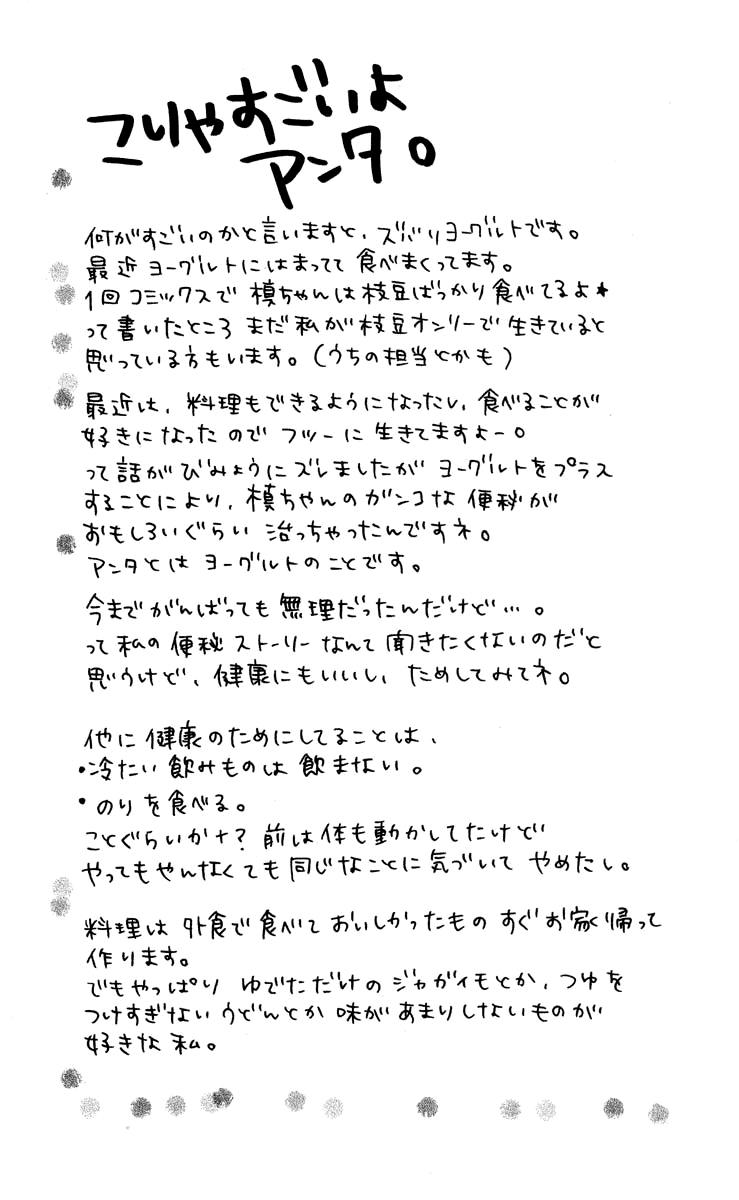 こりゃすごいよ
アンタ。
何がすごいのかと言いますと、ズバリヨーグルトです。
最近 ヨーグルトにはまってて 食べまくってます。
1回コミックスで 槙ちゃんは枝豆ばっかり食べてるよ★
って書いたところ まだ私が枝豆オンリーで生きていると
思っている方もいます。(うちの担当とかも)
最近は、料理もできるようになったし、食べることが
好きになったので フツーに生きてますよー。
って話がびみょうにズレましたが ヨーグルトをプラス
することにより、槙ちゃんのガンコな便秘が
おもしろいぐらい 治っちゃったんですネ。
アンタとは ヨーグルトのことです。
今までがんばっても無理だったんだけど…。
って私の便秘ストーリーなんて聞きたくないのだと
思うけど、健康にもいいし、ためしてみてネ。
他に健康のためにしてることは、
・冷たい飲みものは飲まない。
・のりを食べる。
ことぐらいかナ?前は体も動かしてたけど
やってもやんなくても同じなことに気づいて やめたし。
料理は 外食で食べて おいしかったもの すぐお家帰って
作ります。
でもやっぱり ゆでただけの ジャガイモとか、つゆを
つけすぎない うどんとか 味が あまりしないものが
好きな 私。